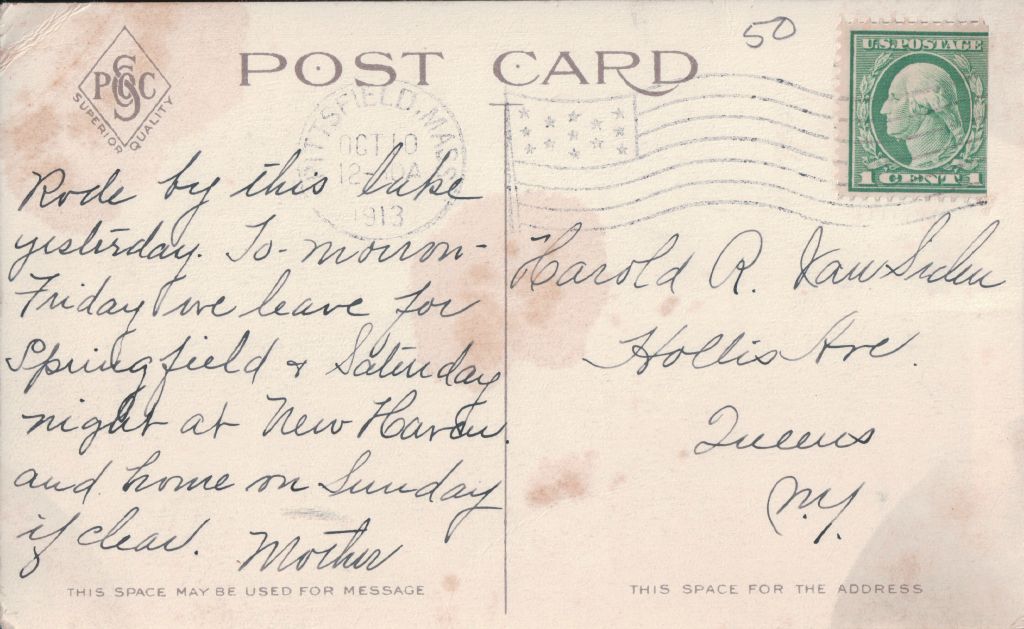 PSC
SUPERIOR QUALITY
POST CARD
50
U.S. POSTAGE
1 CENT 1
PITTSFIELD, MASS
OCT 10
12-
1913
Rode by this lake
yesterday. To-morrow-
Friday we leave for
Springfield & Saturday
night at New Haven.
and home on Sunday
if clear.
Mother
Harold R. Van Siclen
Hollis Ave.
Queens
N.Y.
THIS SPACE MAY BE USED FOR MESSAGE
THIS SPACE FOR THE ADDRESS